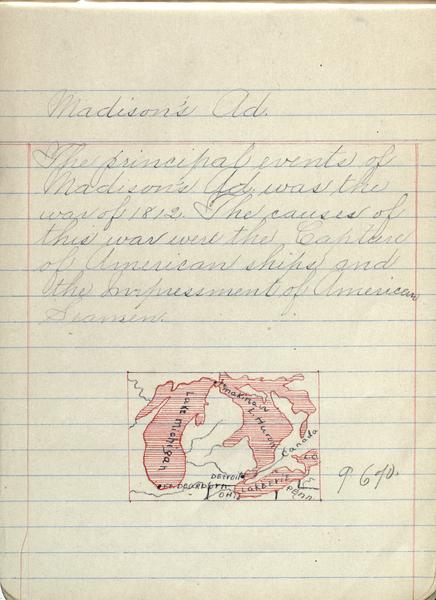 Madison's Ad.
The principal events of
Madison's Ad. was the
war of 1812. The causes of
this war were the Capture
of American ships, and
the Impressment of American
Seamen.
Makinaw
Lake Michigan
L. Huron
Canada
L.O.
Detroit
Ft. Dearborn
Lake Erie
OH.
Penn.
96%